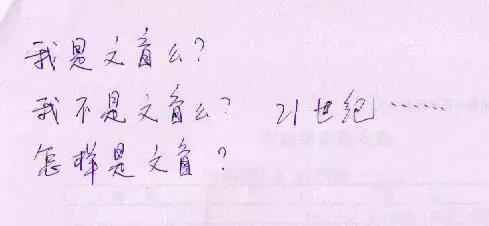 我是文盲么？
我不是文盲么？ 21世纪……
怎样是文盲？